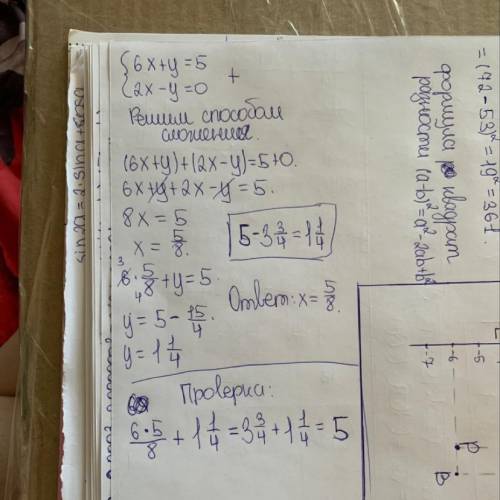 {6x+y=5
{2x-y=0 +
Решим способом
сложения
(6x+y)+(2x-y)=5+0.
6x+y+2x-y=5.
8x=5
x=5/8.
5-3 3/4=1 1/4
6·5/8+y=5
3 4
y=5-15/4
Ответ: x=5/8.
y=1 1/4
Проверка:
6·5/8+1 1/4=3 3/4+1 1/4=5
=(72-53)²=19²=361.
формула квадрат
разности (a+b)²=a²-2ab+b²
-7
-6
-5